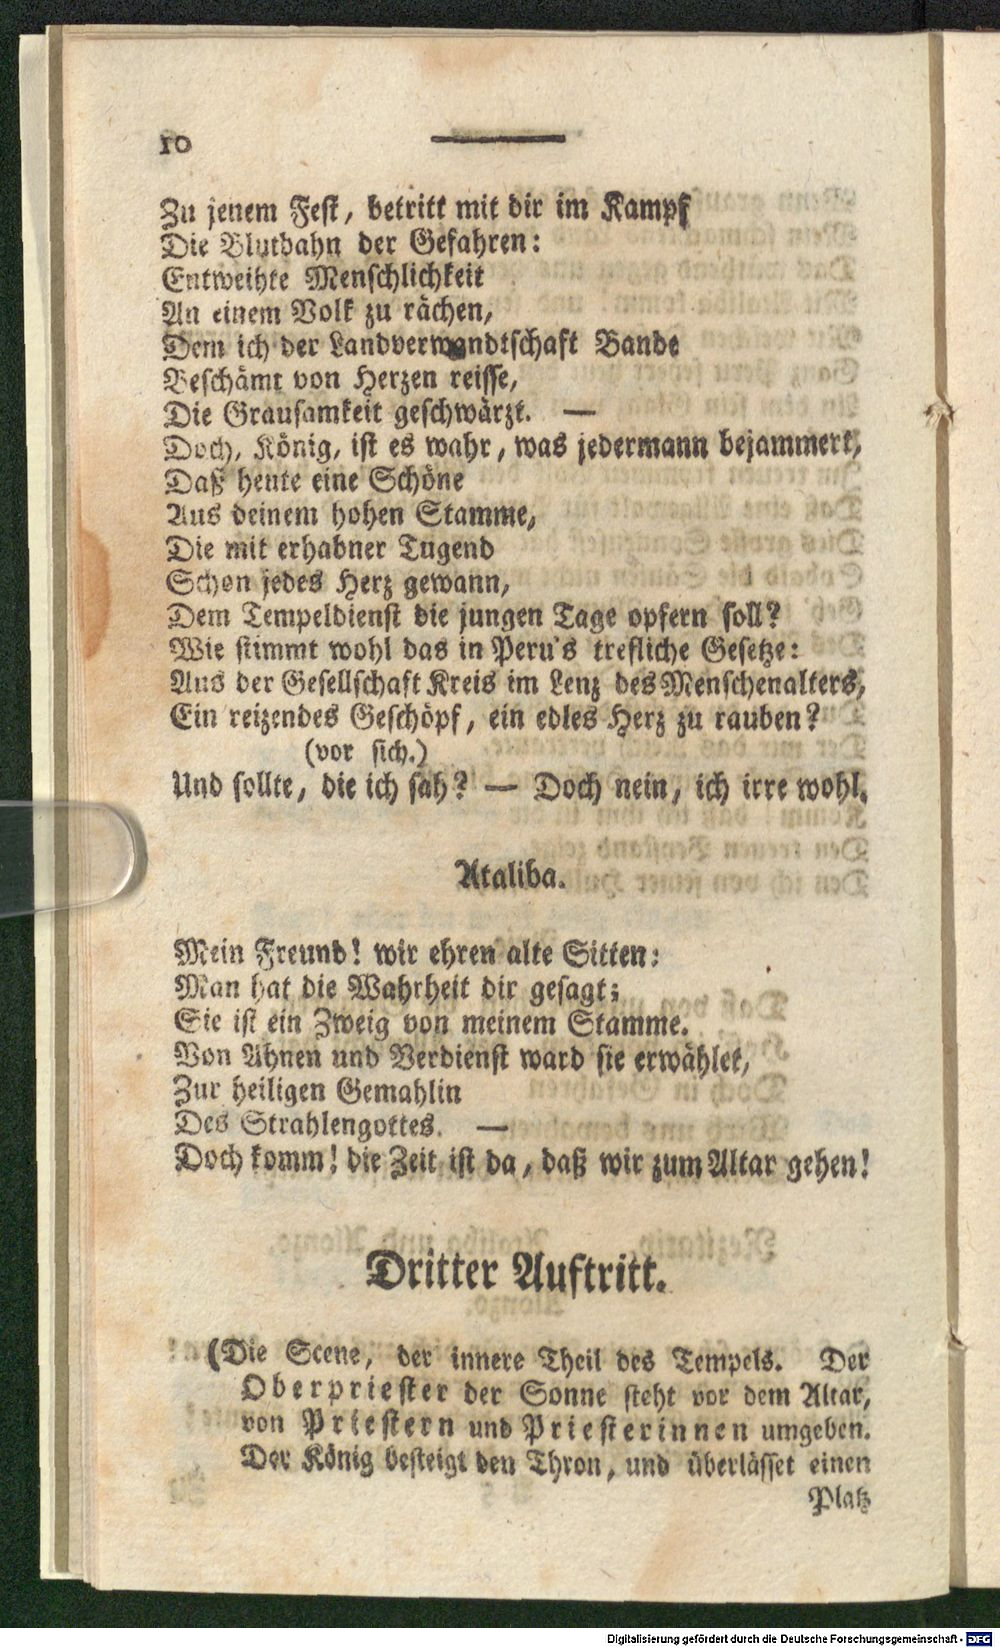 10
Zu jenem Fest, betritt mit dir im Kampf
Die Blutbahn der Gefahren:
Entweihte Menschlichkeit
An einem Volk zu rächen,
Dem ich der Landverwandtschaft Bande
Beschämt von Herzen reisse,
Die Grausamkeit geschwärzt. —
Doch, König, ist es wahr, was jedermann bejammert,
Daß heute eine Schöne
Aus deinem hohen Stamme,
Die mit erhabner Tugend
Schon jedes Herz gewann,
Dem Tempeldienst die jungen Tage opfern soll?
Wie stimmt wohl das in Peru's trefliche Gesetze:
Aus der Gesellschaft Kreis im Lenz des Menschenalters,
Ein reizendes Geschöpf, ein edles Herz zu rauben?
(vor sich.)
Und sollte, die ich sah? — Doch nein, ich irre wohl.
Ataliba.
Mein Freund! wir ehren alte Sitten:
Man hat die Wahrheit dir gesagt;
Sie ist ein Zweig von meinem Stamme.
Von Ahnen und Verdienst ward sie erwählet,
Zur heiligen Gemahlin
Des Strahlengottes. —
Doch komm! die Zeit ist da, daß wir zum Altar gehen!
Dritter Auftritt.
(Die Scene, der innere Theil des Tempels. Der
Oberpriester der Sonne steht vor dem Altar,
von Priestern und Priesterinnen umgeben.
Der König besteigt den Thron, und überlässet einen
Platz
Digitalisierung gefördert durch die Deutsche Forschungsgemeinschaft - DFG